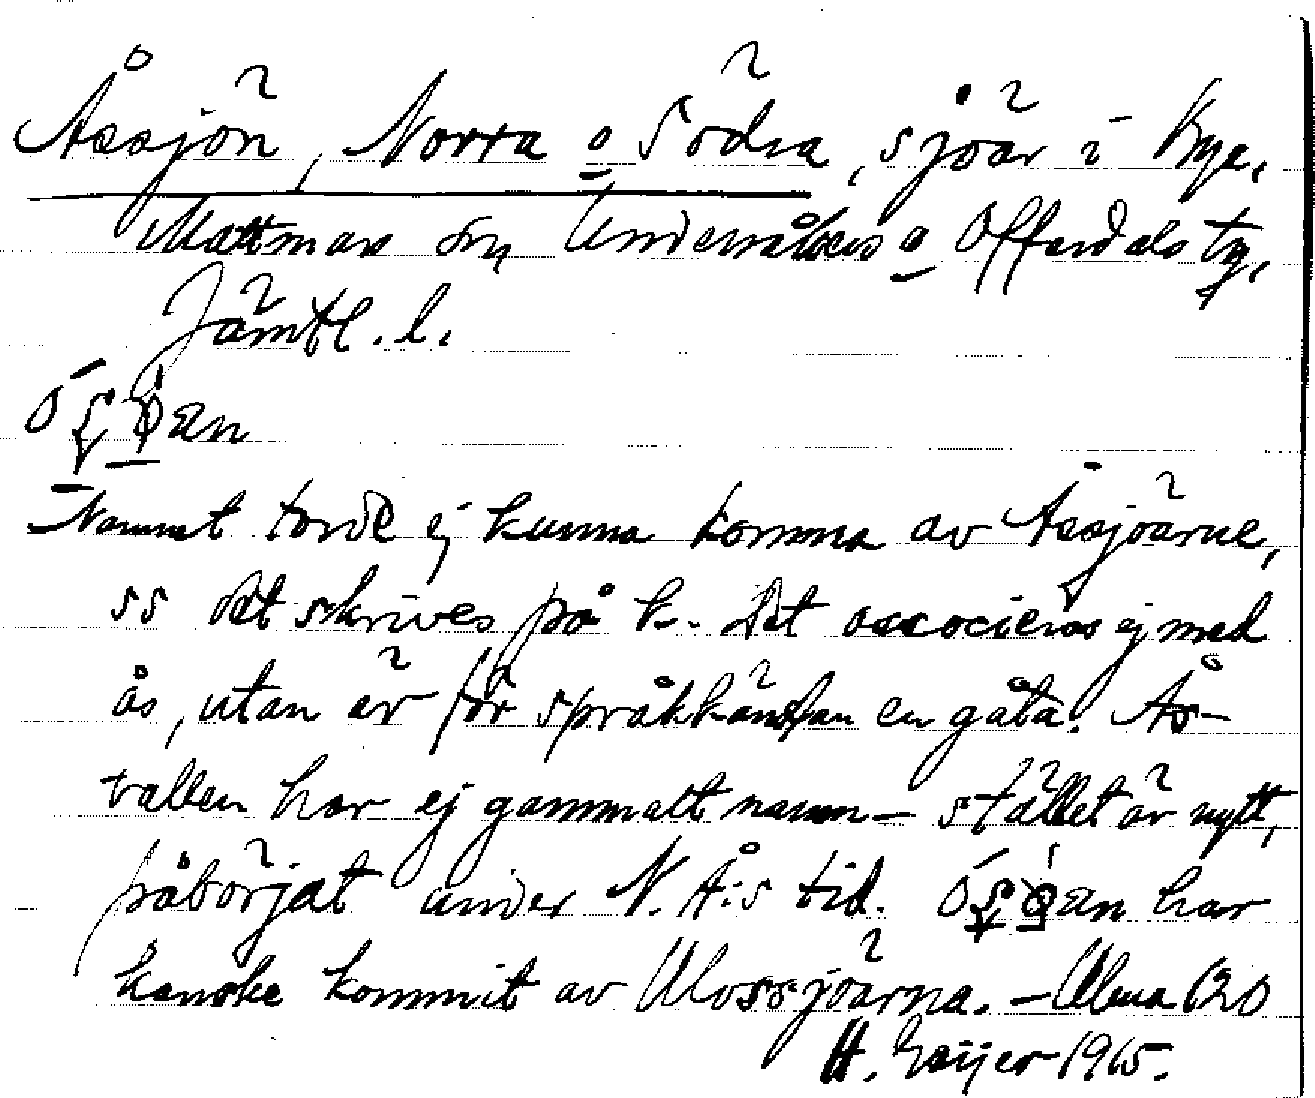 Åssjön, Norra o Södra, sjöar i Kye,
Mattmar sn, Undersåkers o Offerdals tg,
Jämtl. l.
Namnet torde ej kunna komma av Åssjöarne,
ss det skrives på k. Det associeras ej med
ås, utan är för språkkänslan en gåta. Ås-
vallen har ej gammalt namn – stället är nytt,
påbörjat under N. Å:s tid. har
kanske kommit av Ulvssjöarna. –
H. Geijer 1915.